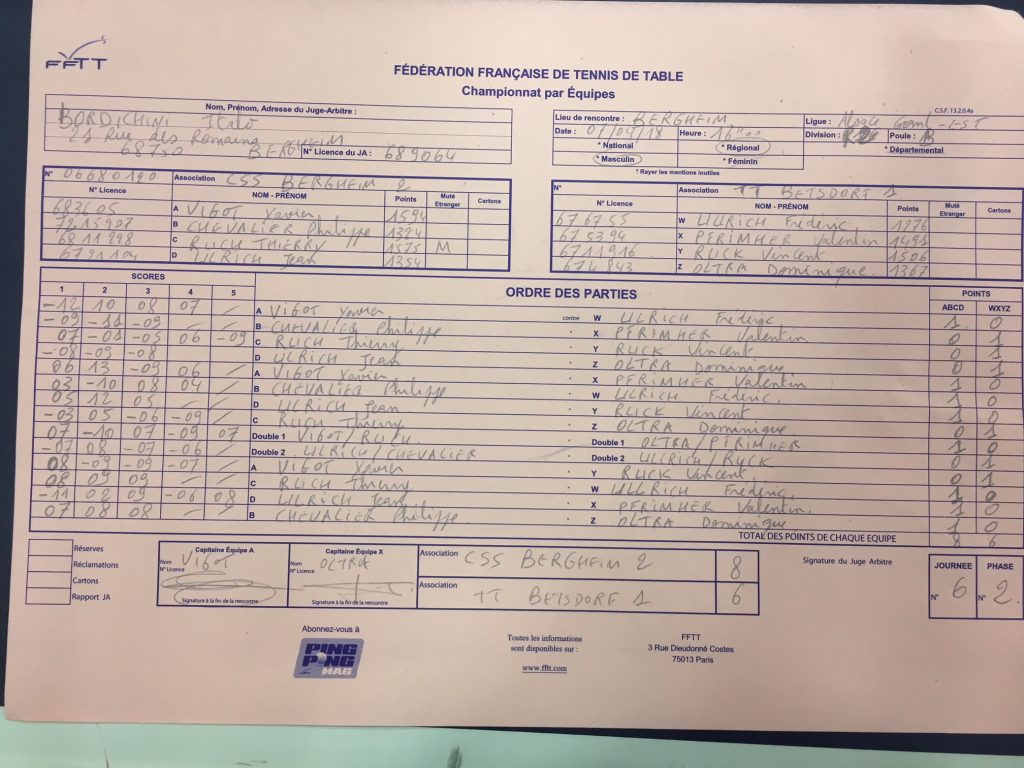 FFTT
FÉDÉRATION FRANÇAISE DE TENNIS DE TABLE
Championnat par Équipes
C.S.F. 13.2.0.4a
Nom, Prénom, Adresse du Juge-Arbitre :
BORDICHINI Italo
21 Rue des Romains
68750 BERGHEIM N° Licence du JA : 689064
Lieu de rencontre : BERGHEIM Ligue : EST
Date : 07/04/18 Heure : 16H00 Division : Poule : B
* National * Régional * Départemental
* Masculin * Féminin
* Rayer les mentions inutiles
N° 06680120 Association CSS BERGHEIM 2
N° Licence NOM - PRÉNOM Points Muté Etranger Cartons
683605 A VIGOT Xavier 1594
7215907 B CHEVALIER Philippe 1324
6811898 C RUCH THIERRY 1575 M
6791104 D ULRICH Jean 1354
N° Association TT BETSDORF 1
N° Licence NOM - PRÉNOM Points Muté Etranger Cartons
676755 W ULLRICH Frédéric 1276
675394 X PFRIMHER Valentin 1491
6711916 Y RUCK Vincent 1506
674843 Z OLTRA Dominique 1367
SCORES ORDRE DES PARTIES POINTS
1 2 3 4 5 ABCD WXYZ
-12 10 08 07 / A VIGOT Xavier contre W ULLRICH Frédéric 1 0
-09 -11 -09 B CHEVALIER Philippe X PFRIMHER Valentin 0 1
07 -01 -05 06 -09 C RUCH Thierry Y RUCK Vincent 0 1
-08 -09 -08 D ULRICH Jean Z OLTRA Dominique 0 1
06 13 -09 06 / A VIGOT Xavier X PFRIMHER Valentin 1 0
03 -10 08 04 / B CHEVALIER Philippe W ULLRICH Frédéric 1 0
05 12 05 / D ULRICH Jean Y RUCK Vincent 1 0
-03 05 -06 -09 / C RUCH Thierry Z OLTRA Dominique 0 1
07 -10 07 -09 07 Double 1 VIGOT/RUCH Double 1 OLTRA/PFRIMHER 1 0
-07 08 -07 -06 / Double 2 ULRICH/CHEVALIER Double 2 ULLRICH/RUCK 0 1
08 -09 -09 -07 / A VIGOT Xavier Y RUCK Vincent 0 1
08 09 09 / C RUCH Thierry W ULLRICH Frédéric 1 0
-11 08 09 -06 08 D ULRICH Jean X PFRIMHER Valentin 1 0
07 08 08 / B CHEVALIER Philippe Z OLTRA Dominique 1 0
TOTAL DES POINTS DE CHAQUE EQUIPE 8 6
Réserves
Réclamations
Cartons
Rapport JA
Capitaine Équipe A
Nom VIGOT
N° Licence
Signature à la fin de la rencontre
Capitaine Équipe X
Nom OLTRA
N° Licence
Signature à la fin de la rencontre
Association CSS BERGHEIM 2 8
Association TT BETSDORF 1 6
Signature du Juge Arbitre
JOURNEE PHASE
N° 6 N° 2
Abonnez-vous à
PING PONG MAG
Toutes les informations
sont disponibles sur :
www.fftt.com
FFTT
3 Rue Dieudonné Costes
75013 Paris